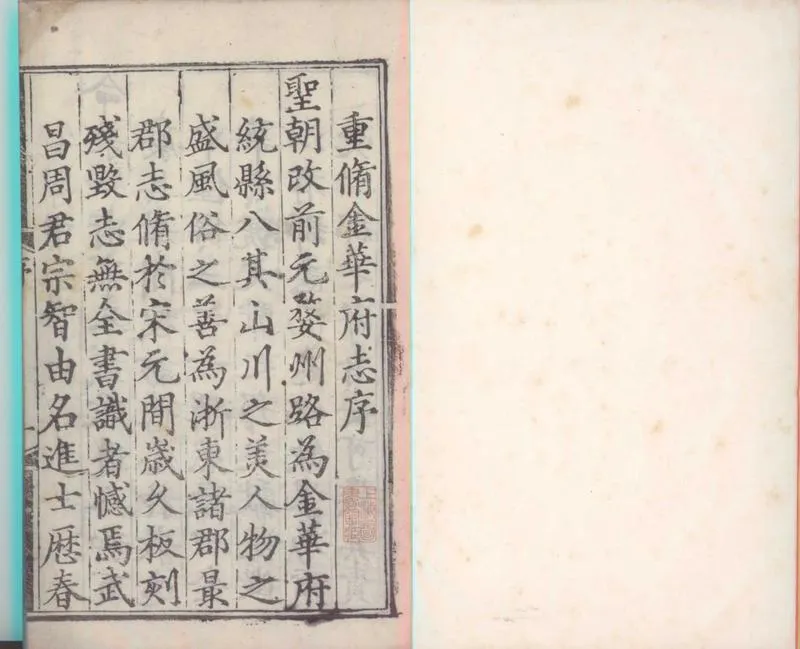 重脩金華府志序
聖朝改前元婺州路為金華府
統縣八其山川之美人物之
盛風俗之善為浙東諸郡最
郡志脩於宋元間歲久板刻
殘毀志無全書識者憾焉武
昌周君宗智由名進士歷春
序